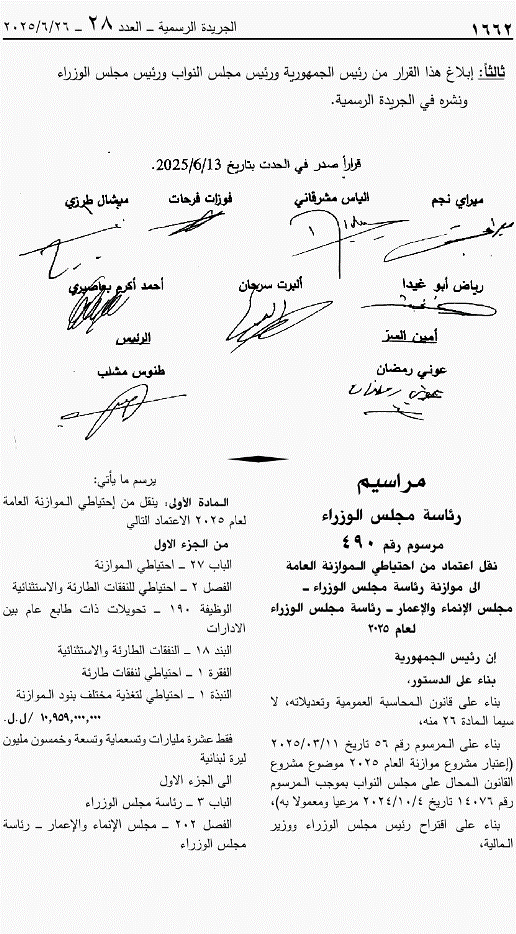 ١٦٦٢
الجريدة الرسمية – العدد ٢٨ – ٢٠٢٥/٦/٢٦
ثالثاً: إبلاغ هذا القرار من رئيس الجمهورية ورئيس مجلس النواب ورئيس مجلس الوزراء
ونشره في الجريدة الرسمية.
قراراً صدر في الحدت بتاريخ 2025/6/13.
ميراي نجم
الياس مشرقاني
فوزات فرحات
ميشال طرزي
رياض أبو غيدا
ألبرت سرحان
أحمد أكرم بعاصيري
أمين السر
الرئيس
عوني رمضان
طنوس مشلب
عوني رمضان
مراسيم
رئاسة مجلس الوزراء
مرسوم رقم ٤٩٠
نقل اعتماد من احتياطي الموازنة العامة
الى موازنة رئاسة مجلس الوزراء –
مجلس الإنماء والإعمار – رئاسة مجلس الوزراء
لعام ٢٠٢٥
إن رئيس الجمهورية
بناء على الدستور،
بناء على قانون المحاسبة العمومية وتعديلاته، لا
سيما المادة ٢٦ منه،
بناء على المرسوم رقم ٥٦ تاريخ ٢٠٢٥/٠٣/١١
(إعتبار مشروع موازنة العام ٢٠٢٥ موضوع مشروع
القانون المحال على مجلس النواب بموجب المرسوم
رقم ١٤٠٧٦ تاريخ ٢٠٢٤/١٠/٤ مرعيا ومعمولا به)،
بناء على اقتراح رئيس مجلس الوزراء ووزير
المالية،
يرسم ما يأتي:
المادة الأولى: ينقل من إحتياطي الموازنة العامة
لعام ٢٠٢٥ الاعتماد التالي
من الجزء الاول
الباب ٢٧ – احتياطي الموازنة
الفصل ٢ – احتياطي للنفقات الطارئة والاستثنائية
الوظيفة ١٩٠ – تحويلات ذات طابع عام بين
الادارات
البند ١٨ – النفقات الطارئة والاستثنائية
الفقرة ١ – احتياطي لنفقات طارئة
النبذة ١ – احتياطي لتغذية مختلف بنود الموازنة
١٠,٩٥٩,٠٠٠,٠٠٠ /ل.ل.
فقط عشرة مليارات وتسعماية وتسعة وخمسون مليون
ليرة لبنانية
الى الجزء الاول
الباب ٣ – رئاسة مجلس الوزراء
الفصل ٢٠٢ – مجلس الإنماء والإعمار – رئاسة
مجلس الوزراء